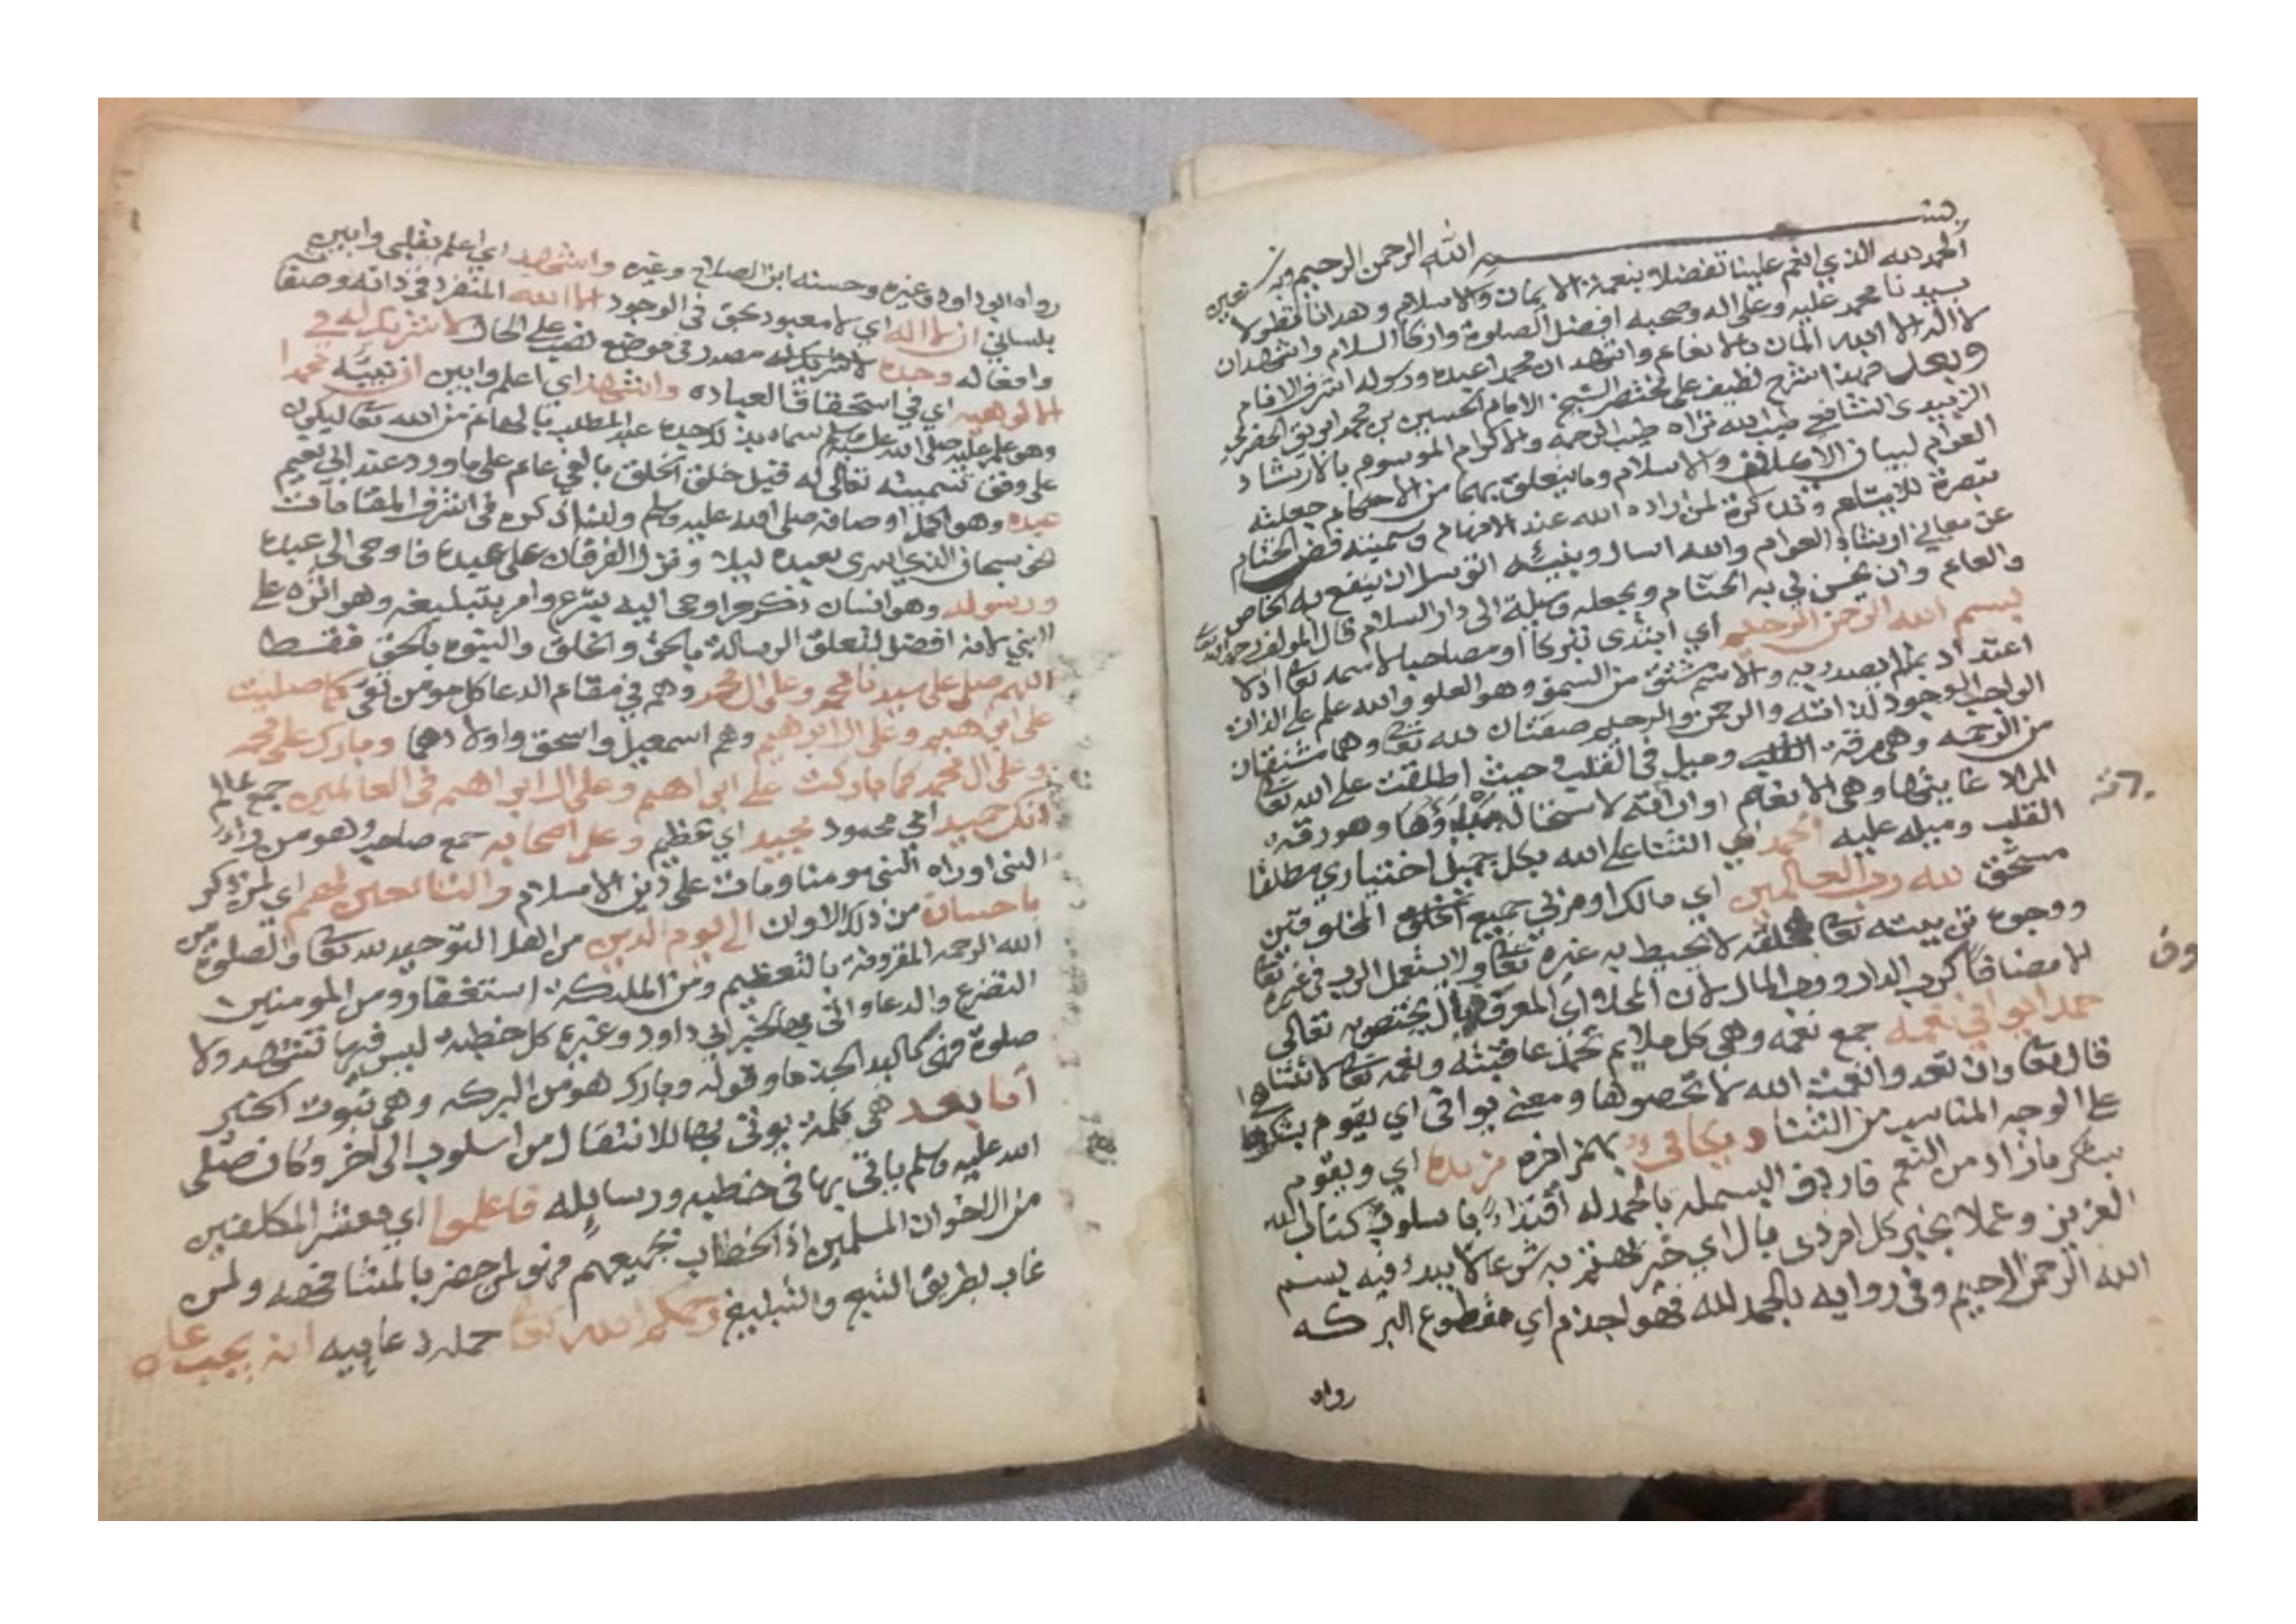 بسم الله الرحمن الرحيم وبه نستعين
الحمد لله الذي انعم علينا تفضلا بنعمة الايمان والاسلام وهدانا
بسيدنا محمد عليه وعلى اله وصحبه افضل الصلوة وازكا السلام واشهد ان
لا اله الا الله المان بالانعام واشهد ان محمدا عبده ورسوله اشرف الانام
وبعد فهذا شرح لطيف على مختصر الشيخ الامام الحسين بن محمد
الزبيدي الشافعي طيب الله ثراه طيب الرحمه والاكرام الموسوم بالارشاد
العوام لبيان والاسلام وما يتعلق بهما من الاحكام جعلته
تبصرة للابتلهم وتذكرة لمن اراده الله عند الافهام وسميته فض الختام
عن معاني ارشاد العوام والله اسال وبنبيه اتوسل ان ينفع به الخاص
والعام وان يحسن لي به الختام ويجعله وسيلة الى دار السلام قال المولف رحمه الله
بسم الله الرحمن الرحيم اي ابتدى تبركا او مصاحبا لاسمه تعا اذ لا
اعتداد بما لم يصدر به والاسم مشتق من السمو وهو العلو والله علم على الذات
الواجب الوجود لذاته والرحمن والرحيم صفتان لله تعا وهما مشتقان
من الرحمه وهي رقة القلب وميل في القلب وحيث اطلقت على الله تعا
المراد غايتها وهي الانعام او ارادته لاستحالة مبدؤها وهو رقة
القلب وميله عليه الحمد اي الثنا على الله بكل جميل اختياري مطلقا
مستحق لله رب العالمين اي مالك او مربي جميع الخلق المخلوقين
ووجوه تربيته تعا لخلقه لا يحيط به غيره تعا ولا يستعمل الرب في غيره تعا
الا مضافا كرب الدار ورب المال لان المحلا اي المعرف بال يختص به تعالى
حمدا يوافي نعمه جمع نعمه وهي كل ملايم تحمد عاقبته ونعمه تعا لا تتناها
قال تعا وان تعدوا نعمت الله لا تحصوها ومعنى يوافي اي يقوم بشكرها
على الوجه المناسب من الثنا ويكافي بهمز اخره مزيده اي ويقوم
بشكر ما زاد من النعم فاردف البسمله بالحمد له اقتداء باسلوب كتاب الله
العزيز وعملا بخبر كل امر ذي بال اي خير مهتم به شرعا لا يبدء فيه ببسم
الله الرحمن الرحيم وفي روايه بالحمد لله فهو اجذم اي مقطوع البركه
رواه
رواه ابو داود وغيره وحسنه ابن الصلاح وغيره واشهد اي اعلم بقلبي وابين
بلساني ان لا اله اي لا معبود بحق في الوجود الا الله المنفرد في ذاته وصفا
وافعاله وحده لا شريك له مصدر في موضع نصب على الحال لا شريك له في
الالوهيه اي في استحقاق العباده واشهد اي اعلم وابين ان نبيه محمدا
وهو علم عليه صلى الله عليه وسلم سماه بذلك جده عبد المطلب بالهام من الله تعا ليكون
على وفق تسميته تعالى له قبل خلق الخلق بالفي عام على ما ورد عند ابي نعيم
عبده وهو اكمل اوصافه صلى الله عليه وسلم ولذا ذكره في اشرف المقامات
نحو سبحان الذي اسرى بعبده ليلا ونزل الفرقان على عبده فاوحى الى عبده
ورسوله وهو انسان ذكر حر اوحى اليه بشرع وامر بتبليغه وهو اثره على
النبي لانه افضل لتعلق الرسالة بالحق والخلق والنبوه بالحق فقط
اللهم صل على سيدنا محمد وعلى ال محمد وهم في مقام الدعا كل مومن تقي كما صليت
على ابراهيم وعلى ال ابرهيم وهم اسمعيل واسحق واولادهما وبارك على محمد
وعلى ال محمد كما باركت على ابراهيم وعلى ال ابراهيم في العالمين جمع عالم
انك حميد اي محمود مجيد اي عظيم وعلى اصحابه جمع صاحب وهو من راء
النبي او راه النبي مومنا ومات على دين الاسلام والتابعين لهم اي لمن ذكر
باحسان من ذلك الاوان الى يوم الدين من اهل التوحيد لله تعا والصلوة من
الله الرحمه المقرونة بالتعظيم ومن الملئكة استغفار ومن المومنين
التضرع والدعا واتى بها لخبر ابي داود وغيره كل خطبة ليس فيها تشهد ولا
صلوة فهي كاليد الجذما وقوله وبارك هو من البركه وهي ثبوت الخير
اما بعد هي كلمة يوتى بها للانتقال من اسلوب الى اخر وكان صلى
الله عليه وسلم ياتي بها في خطبه ورسايله فاعلموا اي معشر المكلفين
من الاخوان المسلمين اذ الخطاب لجميعهم فهو لمن حضر بالمشافهه ولمن
غاب بطريق التبع والتبليغ رحمكم الله تعا جمله دعاييه انه يجب على